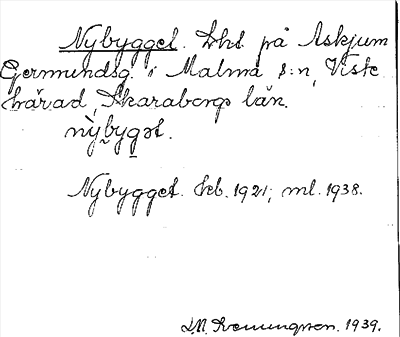 Nybygget. Lht på Askjum
Germundsg. i Malma s:n, Viste
härad, Skaraborgs län.
nỳbyg̲ət.
Nybygget. kb. 1921; ml. 1938.
D.N. Svenningson. 1939.